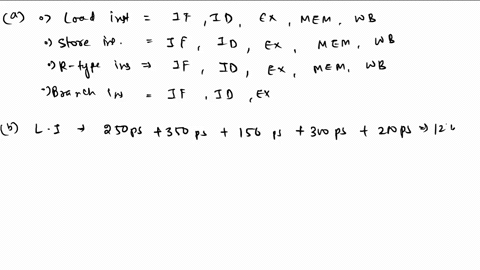 (a) •> Load inst = IF, ID, EX, MEM, WB
•> Store ins. = IF, ID, EX, MEM, WB
•> R-type ins => IF, ID, EX, MEM, WB
•> Branch in = IF, ID, EX
(b) L.I → 250ps + 350 ps + 150 ps + 300 ps + 200 ps =>